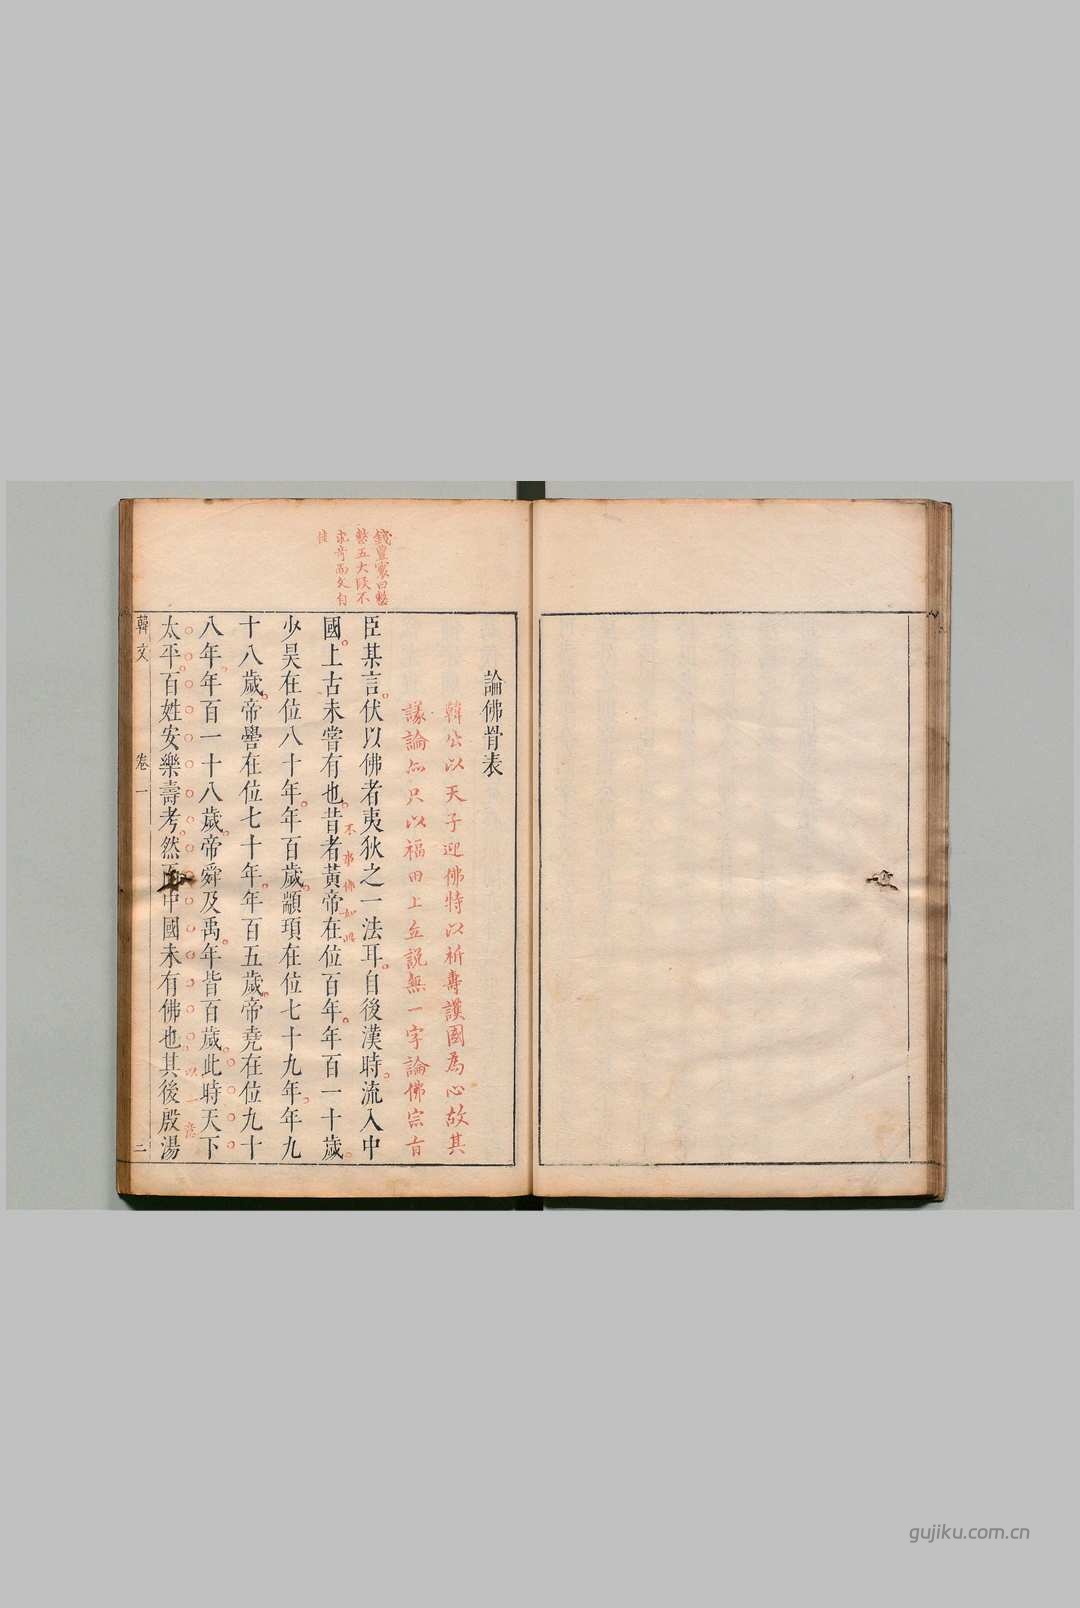 論佛骨表
韓公以天子迎佛特以祈壽護國為心故其
議論亦只以福田上立說無一字論佛宗旨
錢豐寰曰整
整五大段不
求奇而文自
佳
臣某言伏以佛者夷狄之一法耳自後漢時流入中
國上古未嘗有也昔者黃帝在位百年年百一十歲
不事佛如
少昊在位八十年年百歲顓頊在位七十九年年九
十八歲帝嚳在位七十年年百五歲帝堯在位九十
八年年百一十八歲帝舜及禹年皆百歲此時天下
太平百姓安樂壽考然而中國未有佛也其後殷湯
韓文 卷一 二
gujiku.com.cn